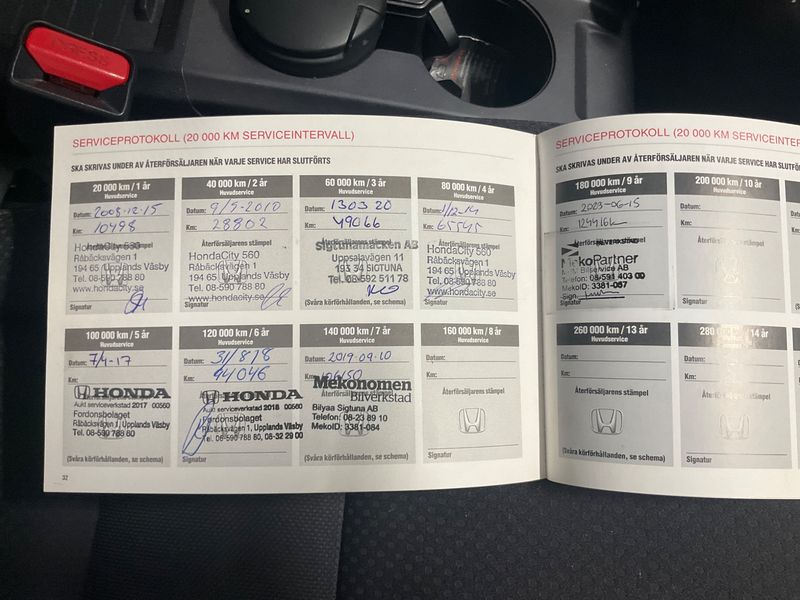 PRESS
SERVICEPROTOKOLL (20 000 KM SERVICEINTERVALL)
SKA SKRIVAS UNDER AV ÅTERFÖRSÄLJAREN NÄR VARJE SERVICE HAR SLUTFÖRTS
20 000 km / 1 år
Huvudservice
Datum: 2008-12-15
Km: 10498
HondaCity 560
Råbäcksvägen 1
194 65 Upplands Väsby
Tel. 08-590 788 80
www.hondacity.se
Signatur
40 000 km / 2 år
Huvudservice
Datum: 9/5-2010
Km: 28802
Återförsäljarens stämpel
HondaCity 560
Råbäcksvägen 1
194 65 Upplands Väsby
Tel. 08-590 788 80
www.hondacity.se
Signatur
60 000 km / 3 år
Huvudservice
Datum: 130320
Km: 49066
Återförsäljarens stämpel
Sigtunamacken AB
Uppsalavägen 11
193 34 SIGTUNA
Tel. 08-592 511 78
(Svåra körförhållanden, se schema)
80 000 km / 4 år
Huvudservice
Datum: 1/12-14
Km: 65545
Återförsäljarens stämpel
HondaCity 560
Råbäcksvägen 1
194 65 Upplands Väsby
Tel. 08-590 788 80
www.hondacity.se
Signatur
100 000 km / 5 år
Huvudservice
Datum: 7/4-17
Km:
HONDA
Aukt serviceverkstad 2017 00560
Fordonsbolaget
Råbäcksvägen 1, Upplands Väsby
Tel. 08-590 788 80
(Svåra körförhållanden, se schema)
120 000 km / 6 år
Huvudservice
Datum: 31/8 18
Km: 94046
HONDA
Aukt serviceverkstad 2018 00560
Fordonsbolaget
Råbäcksvägen 1, Upplands Väsby
Tel. 08-590 788 80, 08-32 29 00
Signatur
140 000 km / 7 år
Huvudservice
Datum: 2019-09-10
Km: 106150
Mekonomen
Bilverkstad
Bilyaa Sigtuna AB
Telefon: 08-23 89 10
MekoID: 3381-084
(Svåra körförhållanden, se schema)
160 000 km / 8 år
Huvudservice
Datum:
Km:
Återförsäljarens stämpel
Signatur
32
SERVICEPROTOKOLL (20 000 KM SERVICEINTER
SKA SKRIVAS UNDER AV ÅTERFÖRSÄLJAREN NÄR VARJE SERVICE HAR SLUTFÖ
180 000 km / 9 år
Huvudservice
Datum: 2023-06-15
Km: 124416k
MekoPartner
Bilservice AB
Tel: 08-591 403 00
MekoID: 3381-087
Sign.
200 000 km / 10 år
Huvudservice
Datum:
Km:
Återförsäljarens stämpel
Signatur
260 000 km / 13 år
Huvudservice
Datum:
Km:
Återförsäljarens stämpel
Signatur
280 000 km / 14 år
Huvudservice
Datum:
Km:
Återförsäljarens stämpel
Signatur